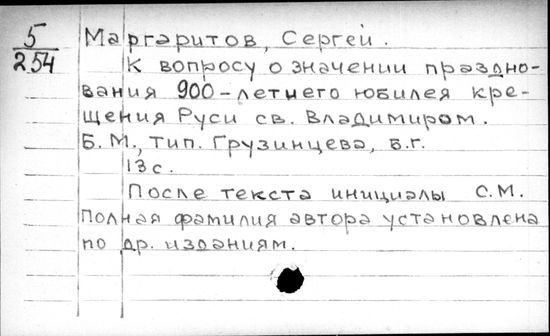 5 Маргаритов, Сергей.
254 К вопросу о значении праздно-
вания 900-летнего юбилея кре-
щения Руси св. Владимиром.
Б.М., тип. Грузинцева, б.г.
13 с.
После текста инициалы С.М.
Полная фамилия автора установлена
по др. изданиям.